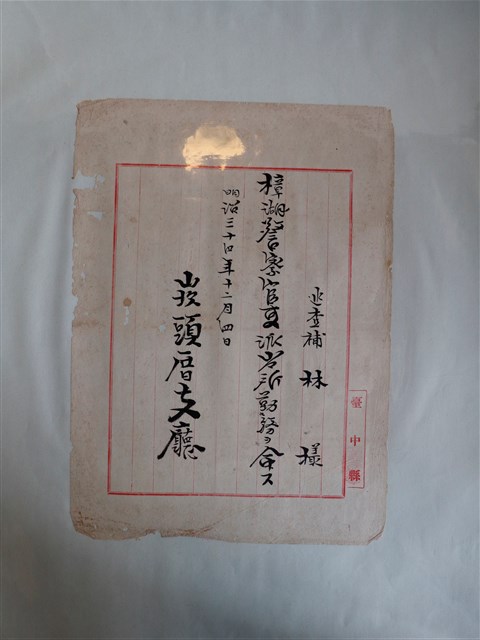 臺中縣
巡查補 林 様
樟湖警察官吏派出所勤務ヲ命ス
明治三十四年十二月四日
崁頭厝支廳